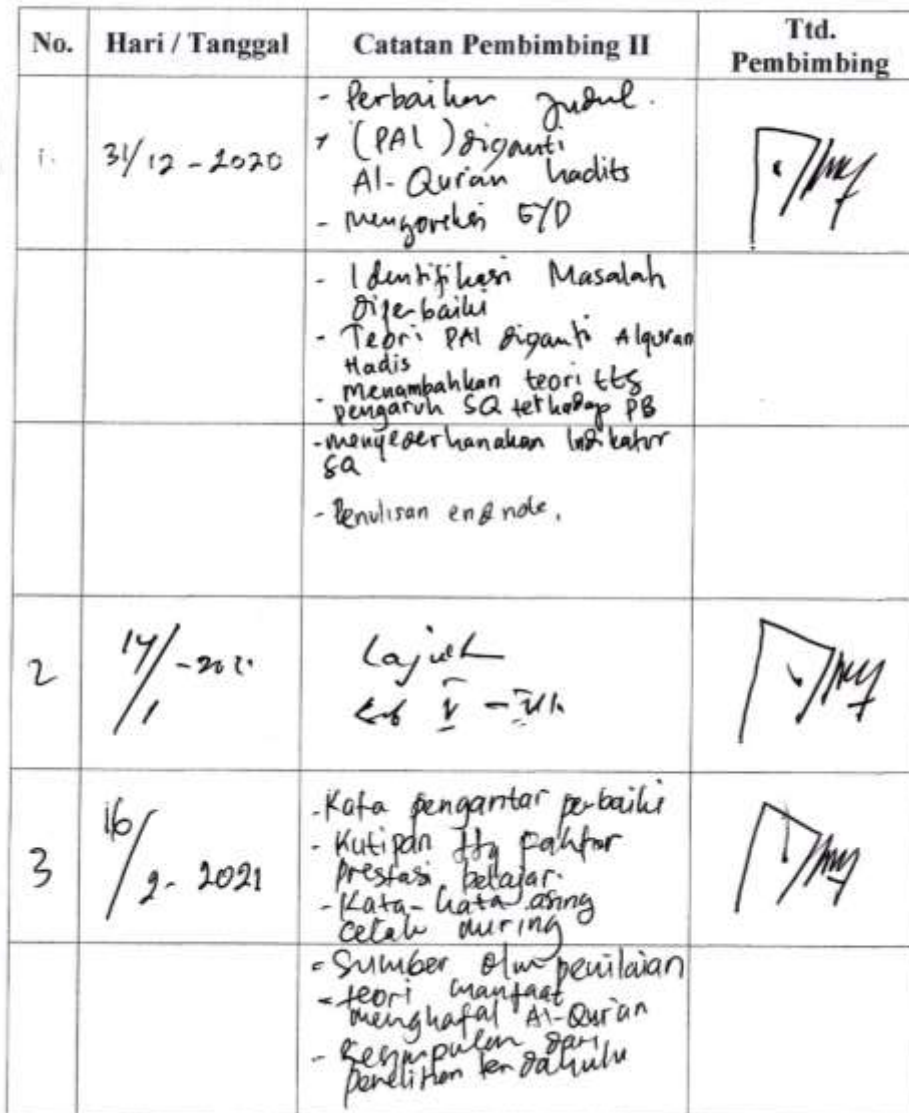 No. Hari / Tanggal Catatan Pembimbing II Ttd. Pembimbing
1. 31/12 - 2020
- Perbaikan Judul.
+ (PAI) diganti
Al-Qur'an hadits
- mengoreksi EYD
- Identifikasi Masalah
diperbaiki
- Teori PAI diganti Alquran
Hadis
- Menambahkan teori ttg
pengaruh SQ terhadap PB
- menyederhanakan Indikator
SQ
- Penulisan endnote.
2 14/1 - 2021
Lanjut
3 16/2 - 2021
- Kata pengantar perbaiki
- Kutipan ttg Faktor
prestasi belajar.
- Kata-kata asing
cetak miring
- Sumber dlm penilaian
- teori manfaat
menghafal Al-Qur'an
- Kesimpulan dari
penelitian terdahulu